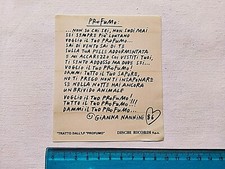 PROFUMO.
...NON SO CHI SEI, NON SUOI MAI
SEI SEMPRE PIU' LONTANO
VOGLIO IL TUO PROFUMO...
SAI DI VENTO SAI DI TE
SULLA TUA PELLE ADDORMENTATA
E MI ACCAREZZO COI VESTITI TUOI,
TI SENTO ADDOSSO MA DOVE SEI...
VOGLIO IL TUO PROFUMO!
DAMMI TUTTO IL TUO SAPORE,
NO TI PREGO NON TI INSAPONARE
SE NELLA NOTTE HAI ANCORA
UN BRIVIDO ANIMALE
VOGLIO IL TUO PROFUMO!
TUTTO IL TUO PROFUMO!!!
DAMMI IL TUO PROFUMO!!!
© GIANNA NANNINI 86
"TRATTO DALL'LP "PROFUMO"
DISCHI RICORDI S.p.A.